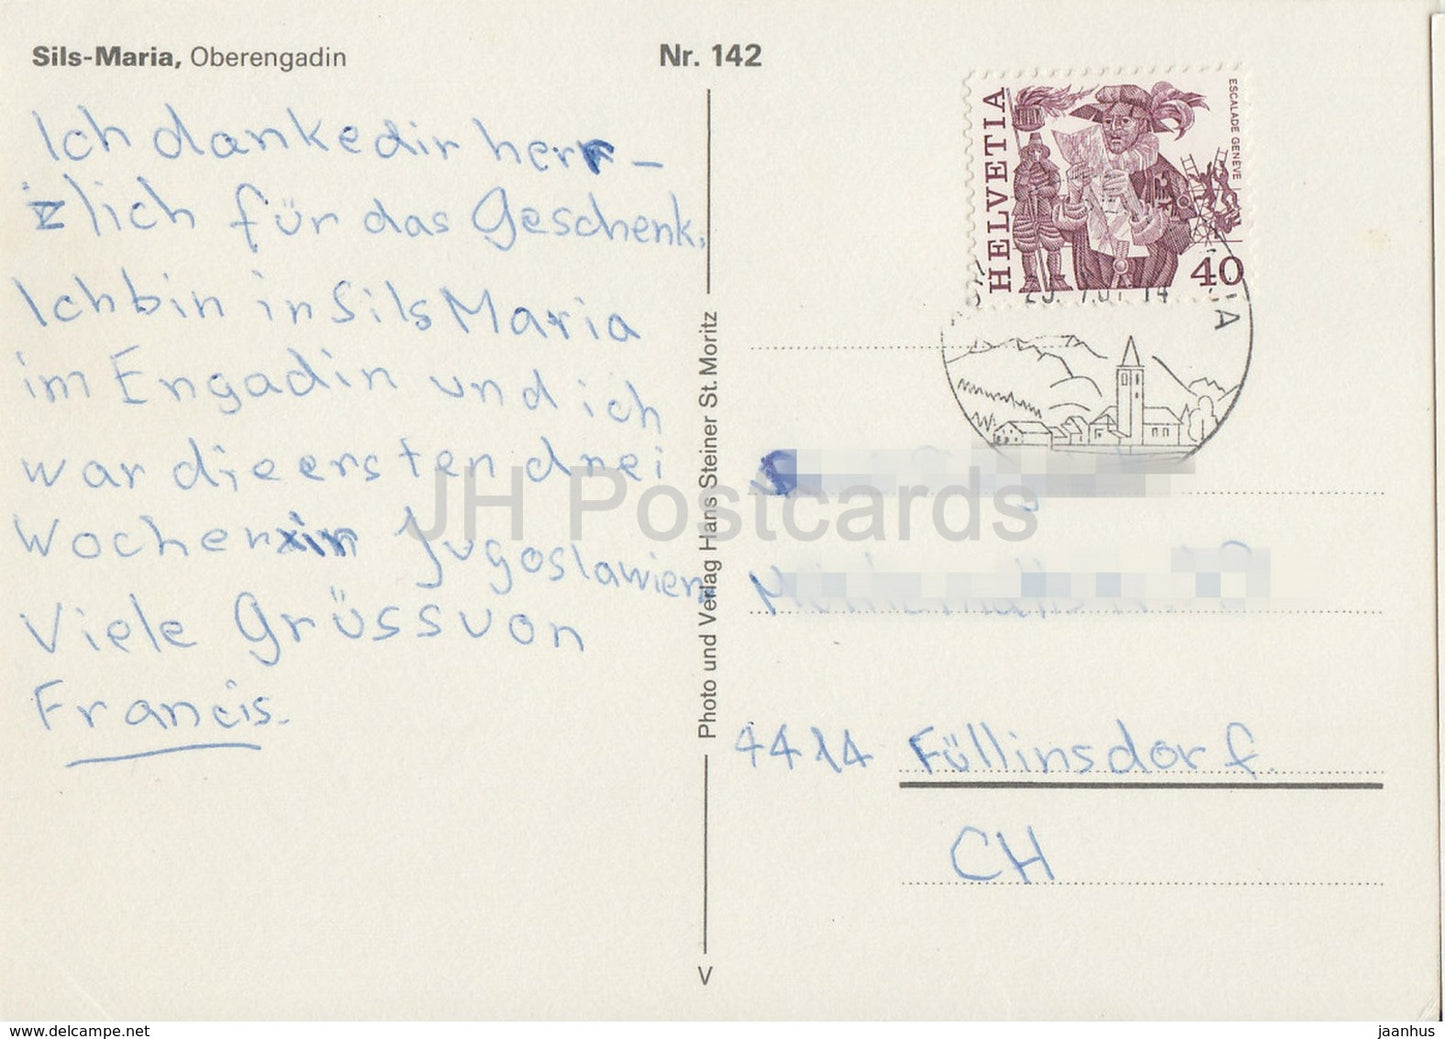 Sils-Maria, Oberengadin
Nr. 142
Ich danke dir herr-
zlich für das Geschenk.
Ich bin in Sils Maria
im Engadin und ich
war die ersten drei
Wochen in Jugoslawien
Viele Grüss von
Francis.
Photo und Verlag Hans Steiner St. Moritz
V
HELVETIA
ESCALADE GENÈVE
40
4414 Füllinsdorf.
CH
JH Postcards
www.delcampe.net
jaanhus